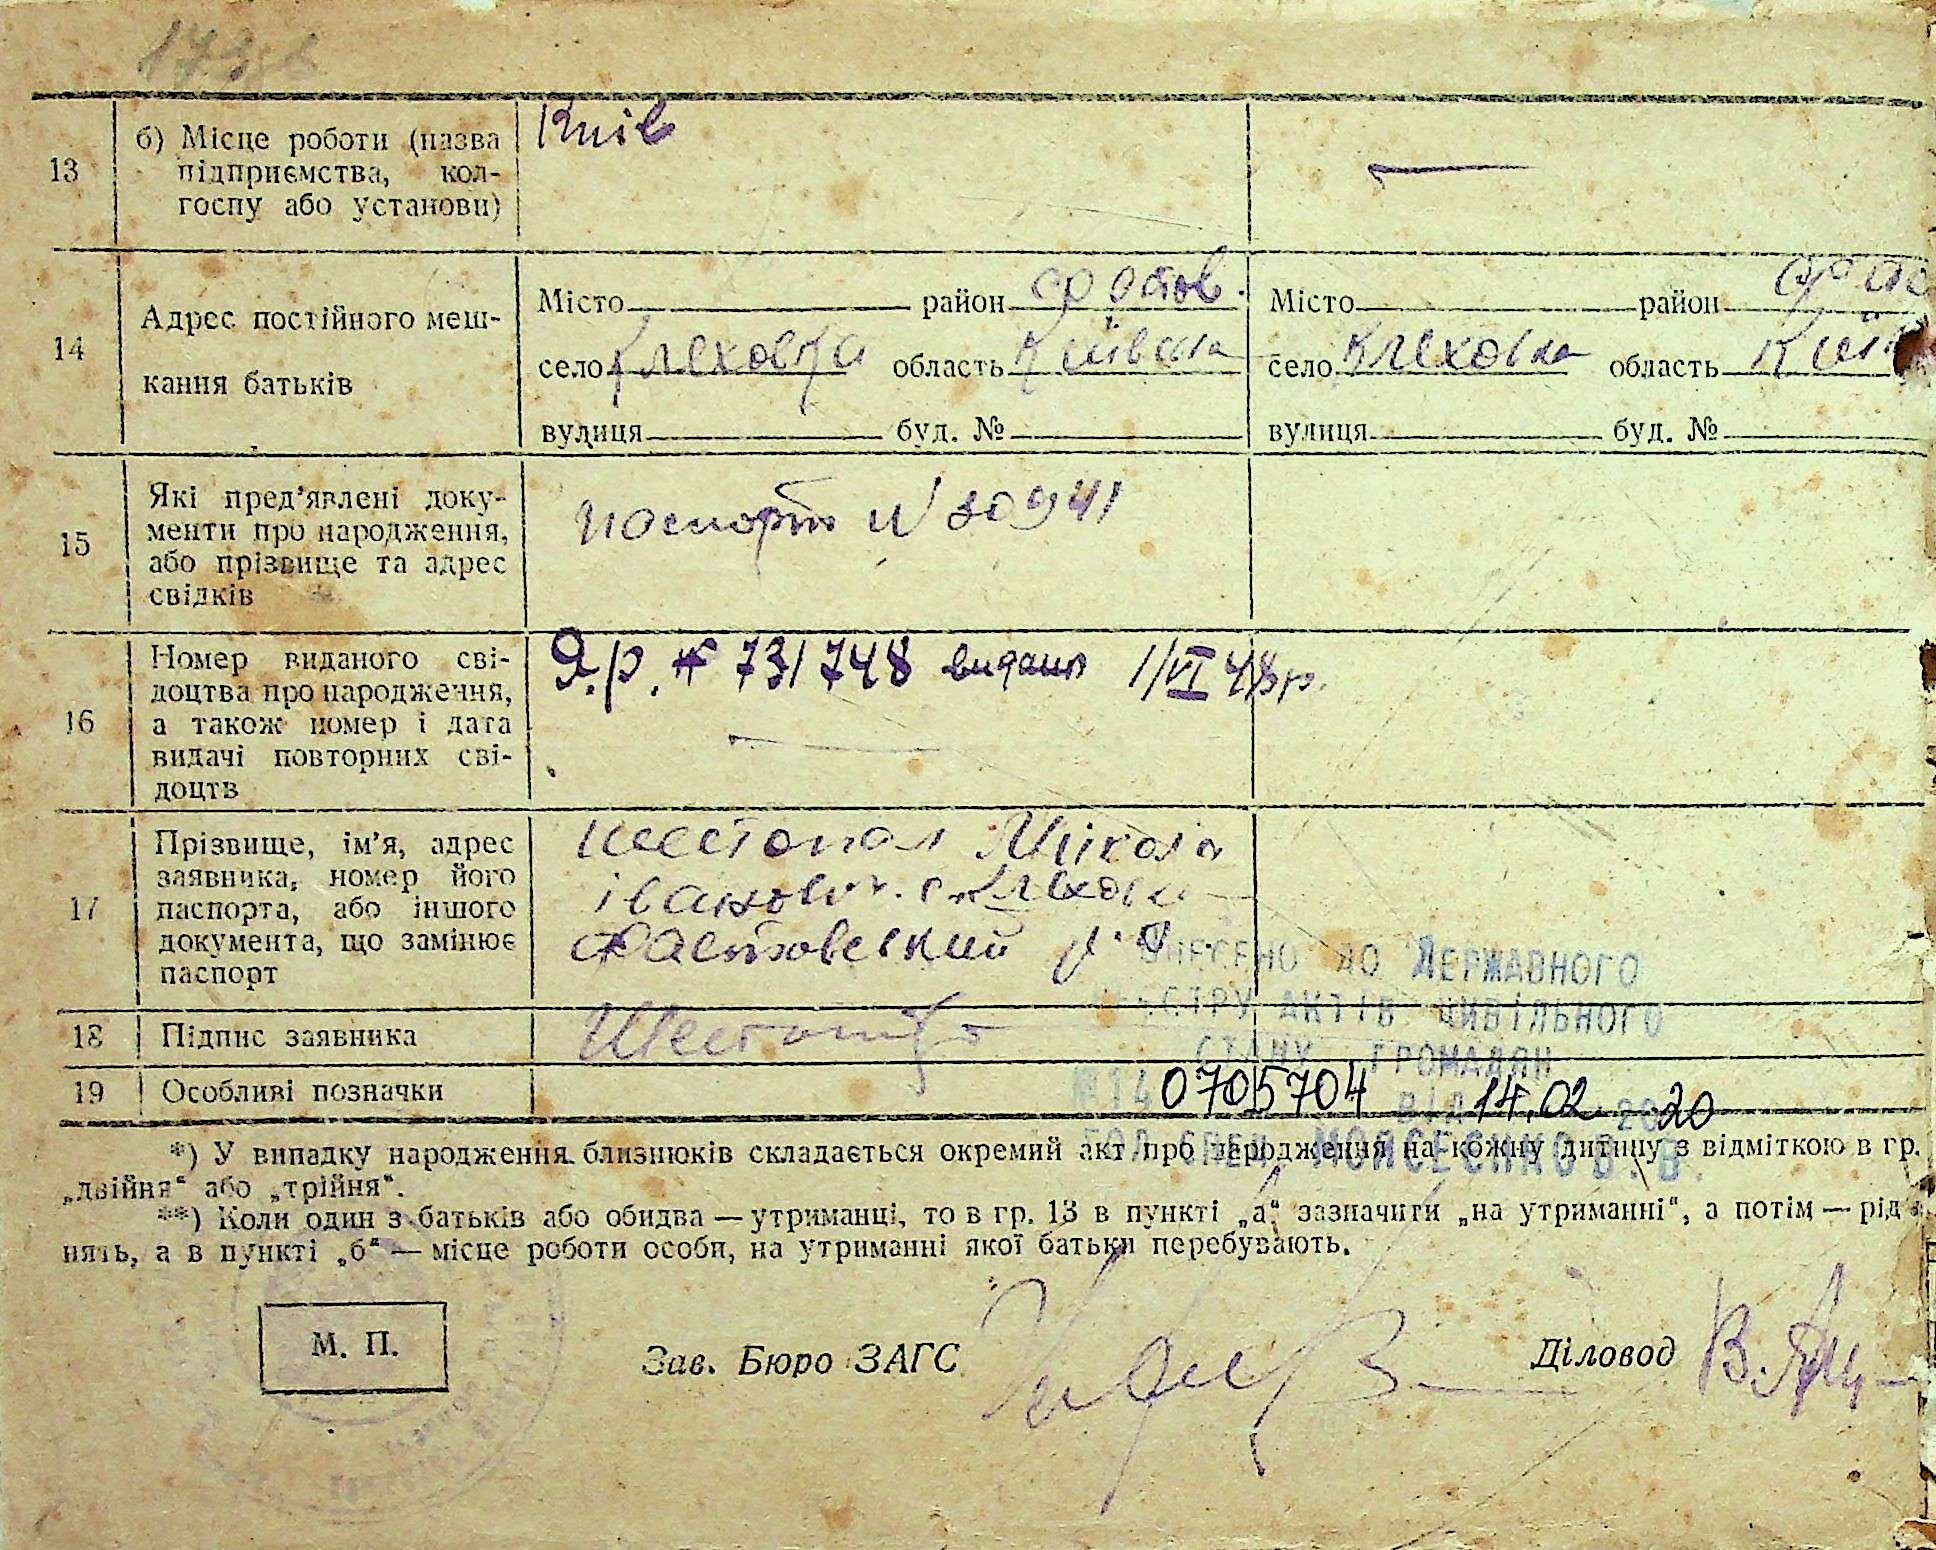 13
б) Місце роботи (назва
підприємства, кол-
госпу або установи)
Київ
14
Адрес постійного меш-
кання батьків
Місто район Фастов.
село Клеховка область Київська
вулиця буд. №
Місто район Фас
село Клеховка область Київ
вулиця буд. №
15
Які пред'явлені доку-
менти про народження,
або прізвище та адрес
свідків
паспорт N 30941
16
Номер виданого сві-
доцтва про народження,
а також номер і дата
видачі повторних сві-
доцтв
Я.р. № 731748 видано 1/VI 48 р.
17
Прізвище, ім'я, адрес
заявника, номер його
паспорта, або іншого
документа, що замінює
паспорт
Шестопал Микола
Іванович. с. Клеховка
Фастовський р.
18
Підпис заявника
19
Особливі позначки
Внесено до Державного
реєстру актів цивільного
стану громадян
№ 14 0705704 від 14.02 2020
Гол. спец. Мойсеєнко В.В.
*) У випадку народження близнюків складається окремий акт про народження на кожну дитину з відміткою в гр.
„двійня“ або „трійня“.
**) Коли один з батьків або обидва — утриманці, то в гр. 13 в пункті „а“ зазначити „на утриманні“, а потім — рід з
нять, а в пункті „б“ — місце роботи особи, на утриманні якої батьки перебувають.
М. П.
Зав. Бюро ЗАГС
Діловод